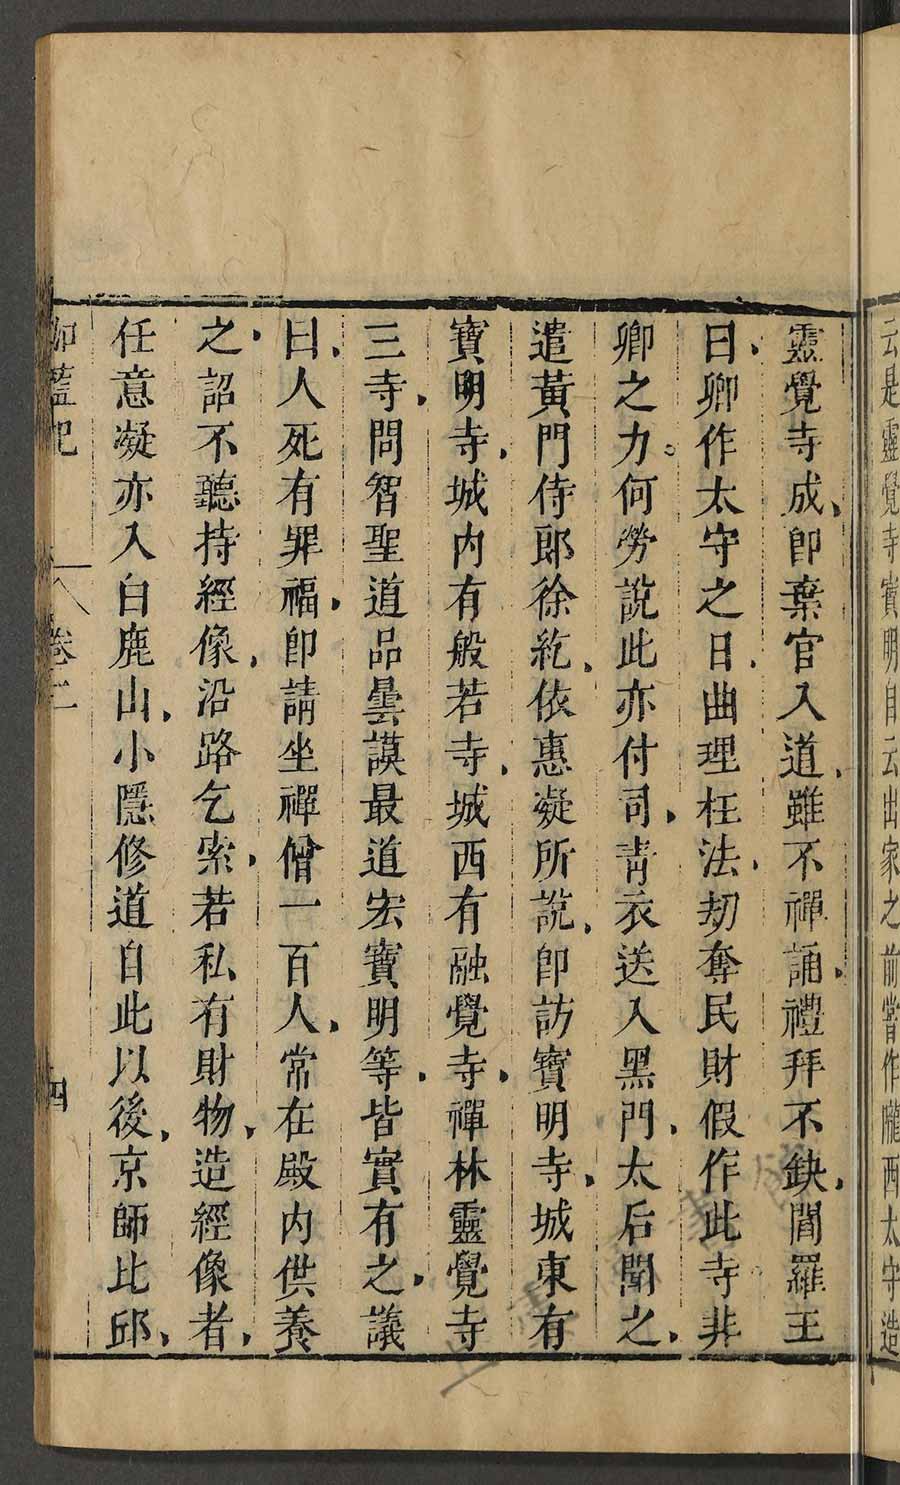 云是靈覺寺寶明自云出家之前嘗作隴西太守造
靈覺寺成、即棄官入道、雖不禪誦、禮拜不缺、閻羅王
曰、卿作太守之日、曲理枉法、刼奪民財假作此寺非
卿之力。何勞說此亦付司、青衣送入黑門、太后聞之、
遣黃門侍郎徐紇、依惠凝所說、即訪寶明寺、城東有
寶明寺、城內有般若寺、城西有融覺寺、禪林靈覺寺
三寺、問智聖道品曇謨最道宏寶明等、皆實有之、議
曰、人死有罪福、即請坐禪僧一百人、常在殿內供養
之、詔不聽持經像、沿路乞索、若私有財物、造經像者、
任意凝亦入白鹿山、小隱修道自此以後、京師比邱、
伽藍記 卷二 四